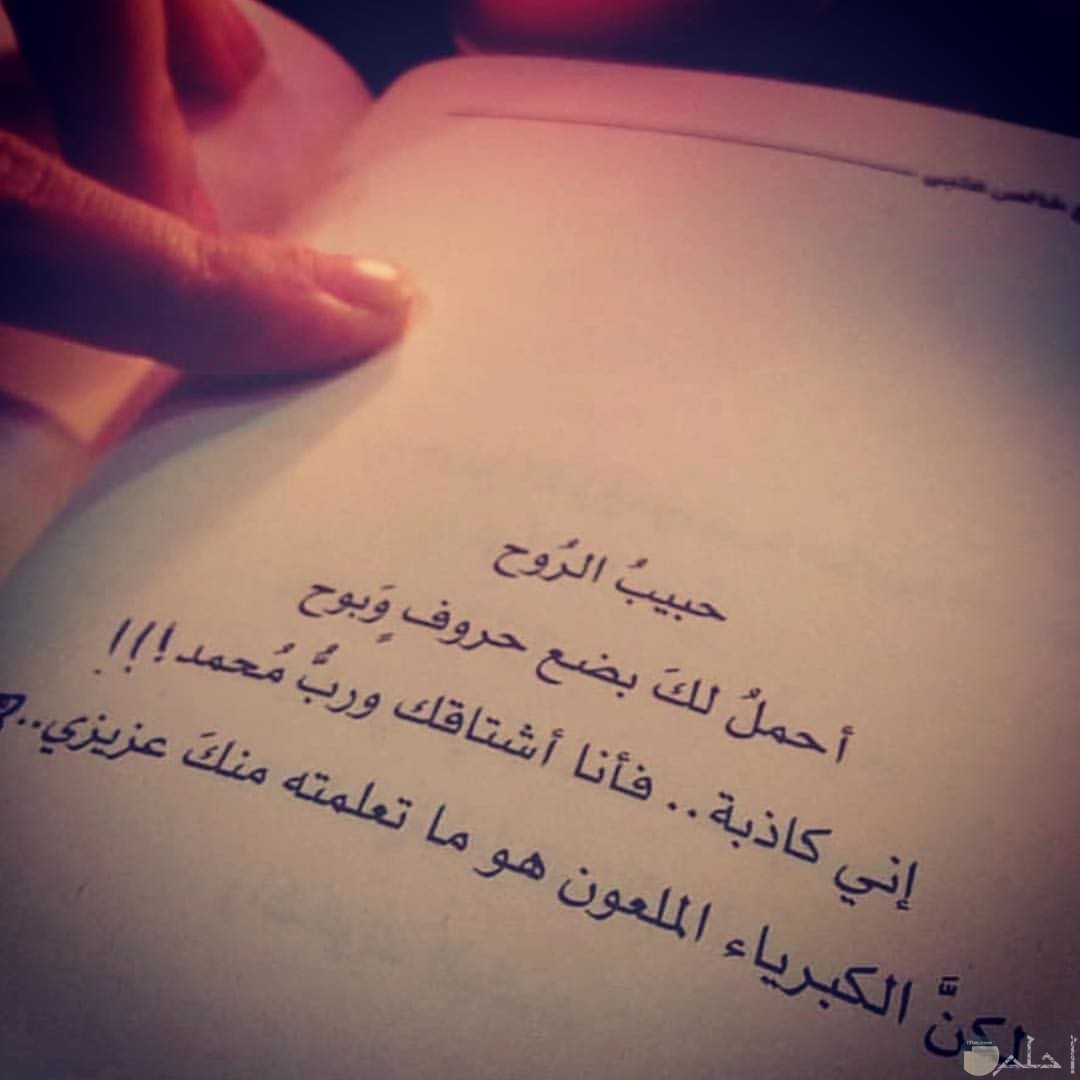 خالص حلبي
حبيبُ الرُوح
أحملُ لكَ بضع حروف وَبوح
إني كاذبة.. فأنا أشتاقك وربُّ مُحمد!!!
لكنَّ الكبرياء الملعون هو ما تعلمته منكَ عزيزي..
احلم